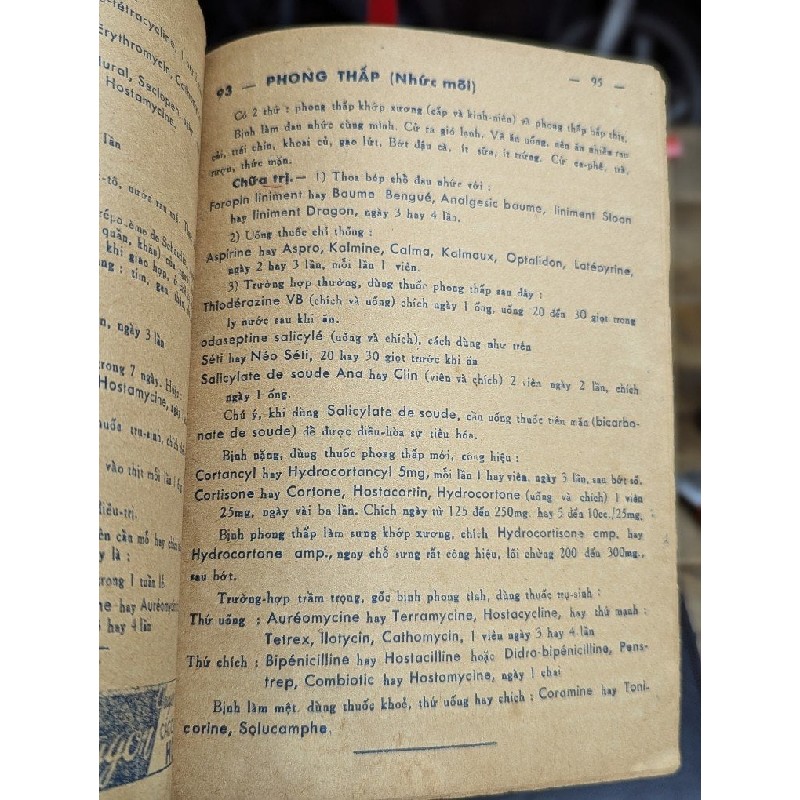 ctétracycline,
Erythromycin,
Hostamycine.
lần
ngày 3 lần
trong 7 ngày.
Hostamycine, ngày
vào thịt mỗi lần 1
điều-trị.
trong 1 tuần lễ.
hay Auréomycine
4 hay 4 lần
93 — PHONG THẤP (Nhức mỏi) — 95 —
Có 2 thứ : phong thấp khớp xương (cấp và kinh-niên) và phong thấp bắp thịt.
Bịnh làm đau nhức cùng mình. Cử ra gió lạnh. Về ăn uống, nên ăn nhiều rau
cải, trái chín, khoai củ, gạo lứt. Bớt đậu cà, ít sữa, ít trứng. Cử cà-phê, trà,
rượu, thức mặn.
Chữa trị.— 1) Thoa bóp chỗ đau nhức với :
Forapin liniment hay Baume Bengué, Analgesic baume, liniment Sloan
hay liniment Dragon, ngày 3 hay 4 lần.
2) Uống thuốc chỉ thống :
Aspirine hay Aspro, Kalmine, Calma, Kalmaux, Optalidon, Latépyrine,
ngày 2 hay 3 lần, mỗi lần 1 viên.
3) Trường hợp thường, dùng thuốc phong thấp sau đây :
Thiodérazine VB (chích và uống) chích ngày 1 ống, uống 20 đến 30 giọt trong
ly nước sau khi ăn.
odaseptine salicylé (uống và chích), cách dùng như trên
Séti hay Néo Séti, 20 hay 30 giọt trước khi ăn
Salicylate de soude Ana hay Clin (viên và chích) 2 viên ngày 2 lần, chích
ngày 1 ống.
Chú ý, khi dùng Salicylate de soude, cần uống thuốc tiêu mặn (bicarbo-
nate de soude) để được điều-hòa sự tiêu hóa.
Bịnh nặng, dùng thuốc phong thấp mới, công hiệu :
Cortancyl hay Hydrocortancyl 5mg, mỗi lần 1 hay viên, ngày 3 lần, sau bớt số.
Cortisone hay Cortone, Hostacortin, Hydrocortone (uống và chích) 1 viên
25mg, ngày vài ba lần. Chích ngày từ 125 đến 250mg. hay 5 đến 10cc./25mg.
Bịnh phong thấp làm sưng khớp xương, chích Hydrocortisone amp. hay
Hydrocortone amp., ngay chỗ sưng rất công hiệu, lối chừng 200 đến 300mg.,
sau bớt.
Trường-hợp trầm trọng, gốc bịnh phong tình, dùng thuốc trụ-sinh :
Thứ uống : Auréomycine hay Terramycine, Hostacycline, hay thứ mạnh :
Tetrex, Ilotycin, Cathomycin, 1 viên ngày 3 hay 4 lần
Thứ chích : Bipénicilline hay Hostacilline hoặc Didro-bipénicilline, Pens-
trep, Combiotic hay Hostamycine, ngày 1 chai
Bịnh làm mệt, dùng thuốc khoẻ, thứ uống hay chích : Coramine hay Toni-
corine, Solucamphe.